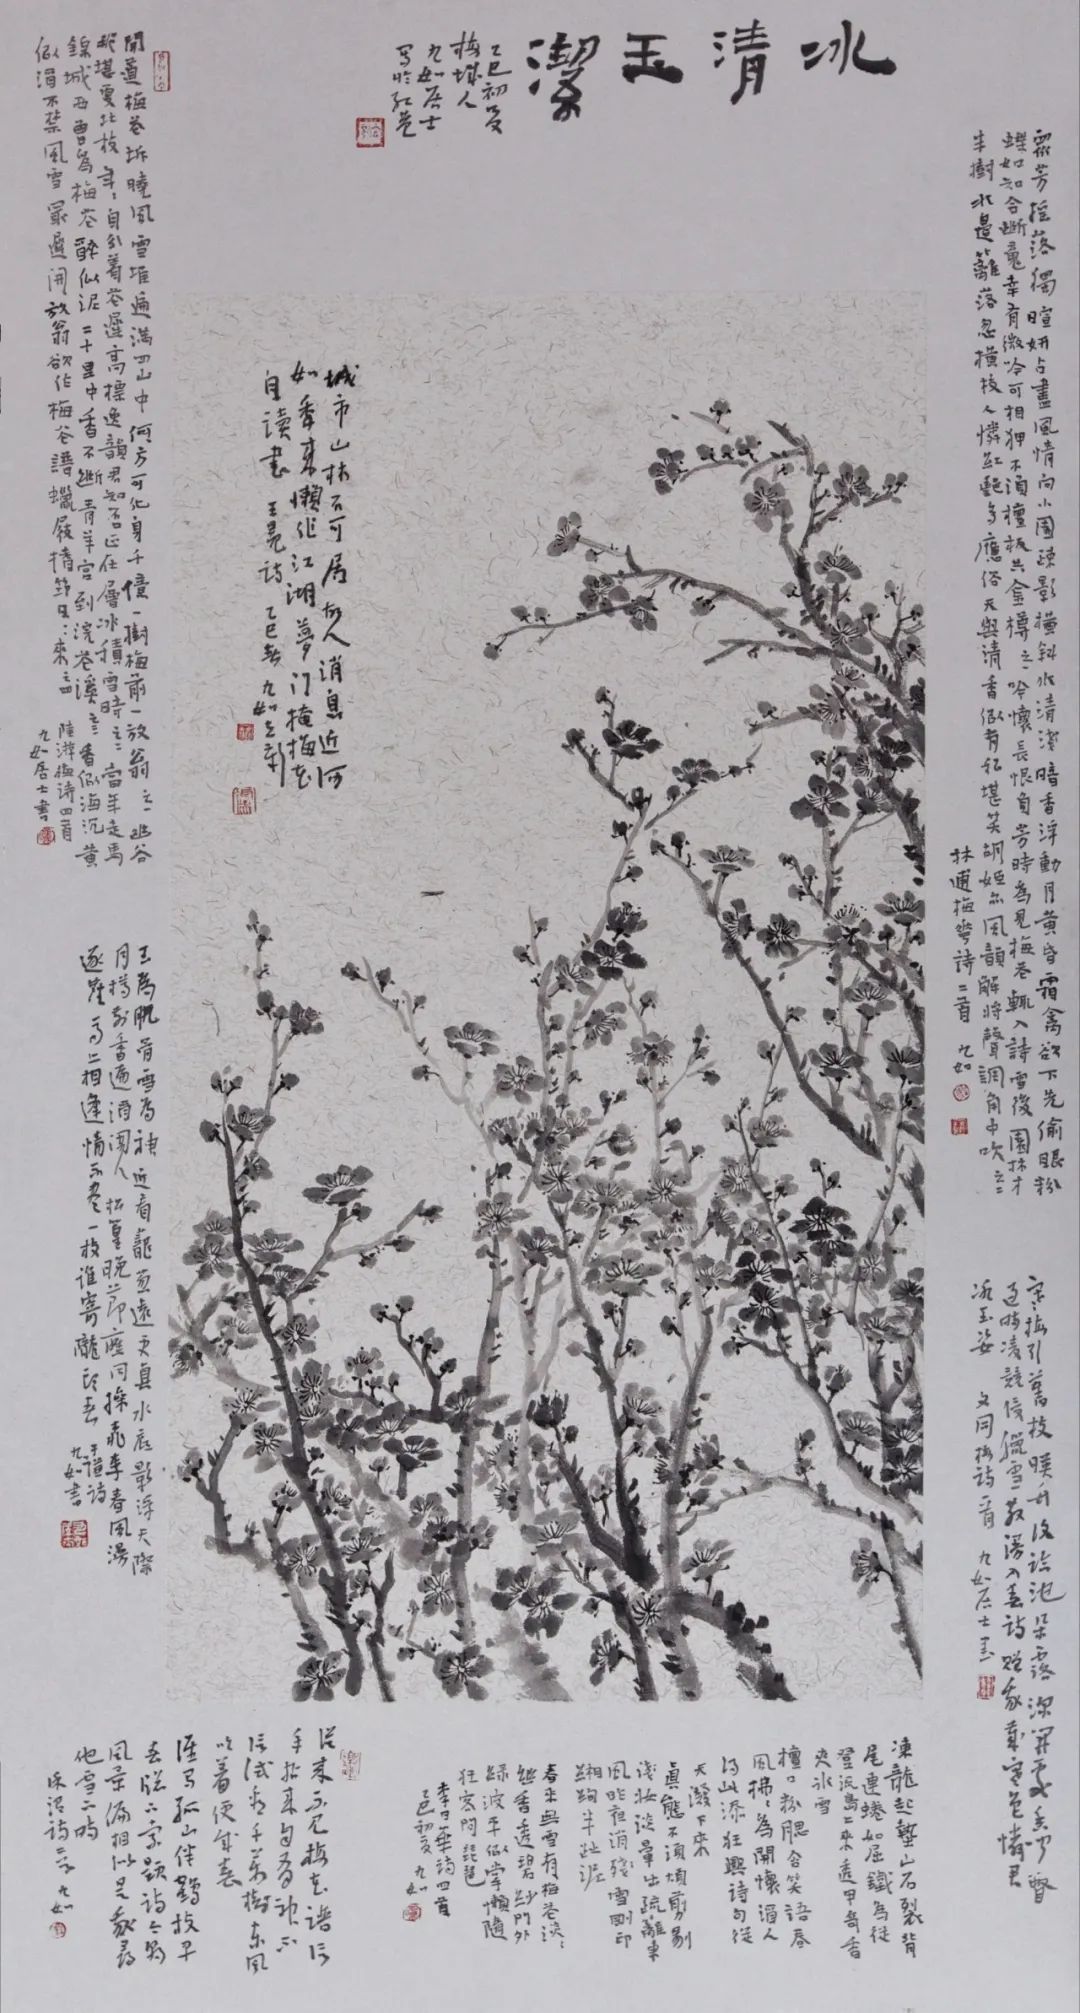 冰清玉潔
乙巳初夏
梅城人
九如居士
寫於孔巷
眾芳搖落獨暄妍占盡風情向小園疎影橫斜水清淺暗香浮動月黃昏霜禽欲下先偷眼粉
蝶如知合斷魂幸有微吟可相狎不須檀板共金樽之一吟懷長恨負芳時為見梅花輒入詩雪後園林才
半樹水邊籬落忽橫枝人憐紅艷多應俗天與清香似有私堪笑胡姬亦風韻解將聲調角中吹之二
林逋梅花詩二首 九如
城市山林不可居故人消息近何
如年來懶作江湖夢門掩梅花
自讀書 王冕詩 乙巳春 九如
聞道梅花坼曉風雪堆遍滿四山中何方可化身千億一樹梅前一放翁之一幽谷
那堪更北枝年年自分著花遲高標逸韻君知否正在層冰積雪時之二當年走馬
錦城西曾為梅花醉似泥二十里中香不斷青羊宮到浣花溪之三香似海沉黃
似涓不禁風雪最遲開放翁欲作梅花譜蠟屐搘筇日日來之四
陸游梅詩四首
九如居士書
玉為肌骨雪為神近看龍蔥遠更真水底影浮天際
月樽前香遍酒闌人松篁晚節應同操桃李春風漫
逐塵為上相逢情不盡一枝誰寄隴頭春
于謙詩
九如書
寒梅引舊枝映竹復臨池朵露深開處香聞瞥
過時凌競侵臘雪散漫入春詩贈我戴寒色憐君
冰玉姿 文同梅詩一首 九如居士書
凍龍起蟄山石裂背
尾連蜷如屈鐵為從
登汲島上來透甲無香
夾冰雪
檀口粉腮含笑語春
風拂拂為開懷酒人
得此添狂興詩句從
天潑下來
真態不須煩剪剔
淺妝淡暈出疏籬東
風昨夜消殘雪剛印
緗鉤半趾泥
春來無雪有梅花淡淡
幽香透碧紗門外
綠波平似掌懶隨
狂客問琵琶
李日華詩四首
乙巳初夏 九如
從來不見梅花譜信
手拈來自有神不
信試看千萬樹東風
吹著便成春
誰寫孤山伴鶴枝早
春殘臘定題詩今朝
風景偏相似是我尋
他雪下時
徐渭詩二首 九如